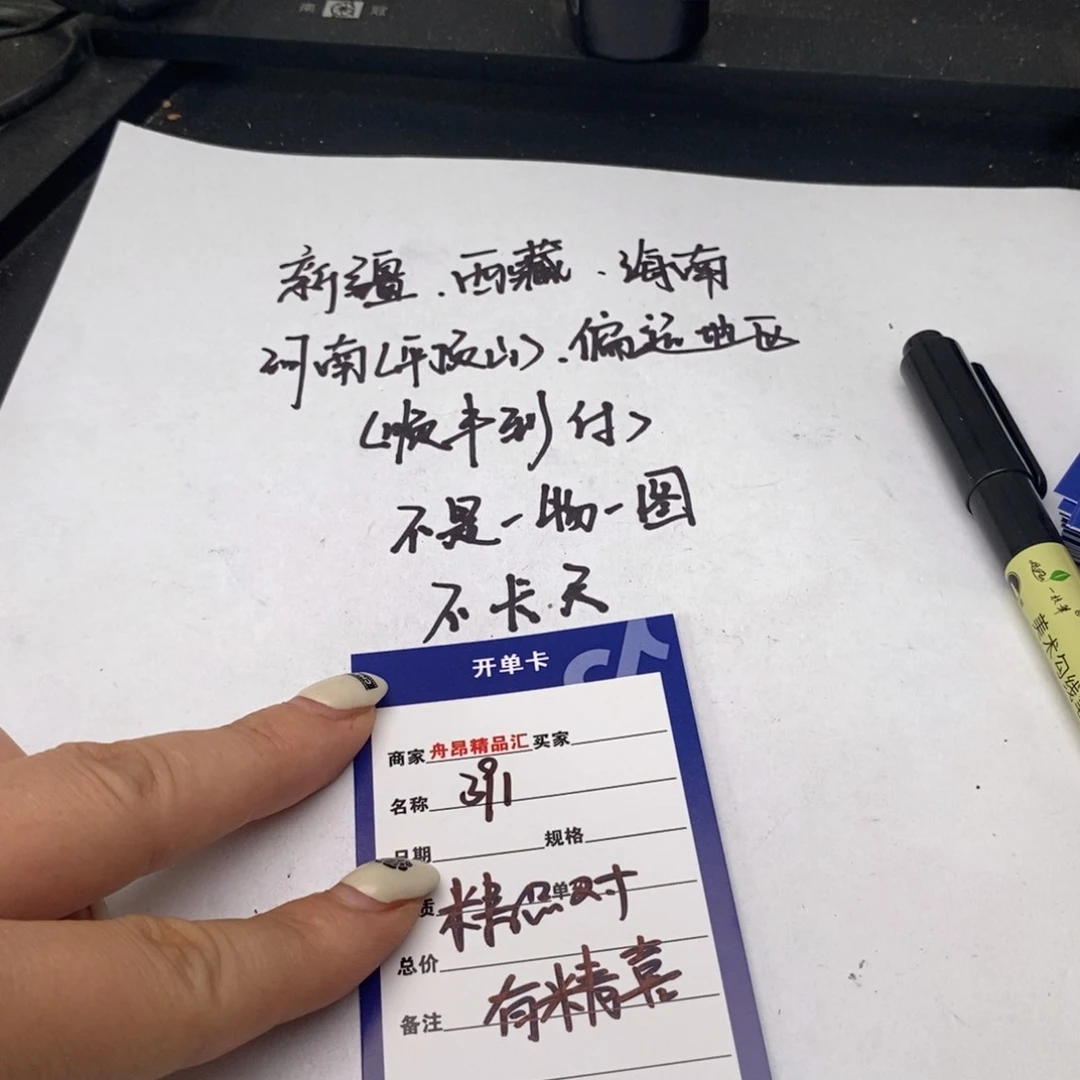 南冠
新疆.西藏.海南
河南(平顶山).偏远地区
(顺丰到付)
不是一物一图
不卡.天
开单卡
商家 舟昂精品汇 买家
名称 391
日期 规格
质 单
总价
备注 有精喜
一枝笔
美术勾线